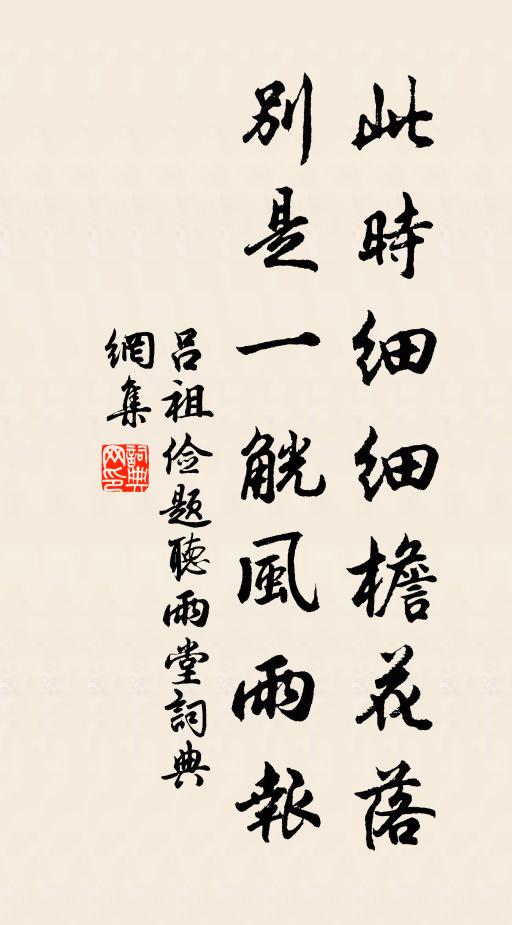 此時細細檐花落
別是一觥風雨報
呂祖儉題聽雨堂詞典
網集
詞典网印